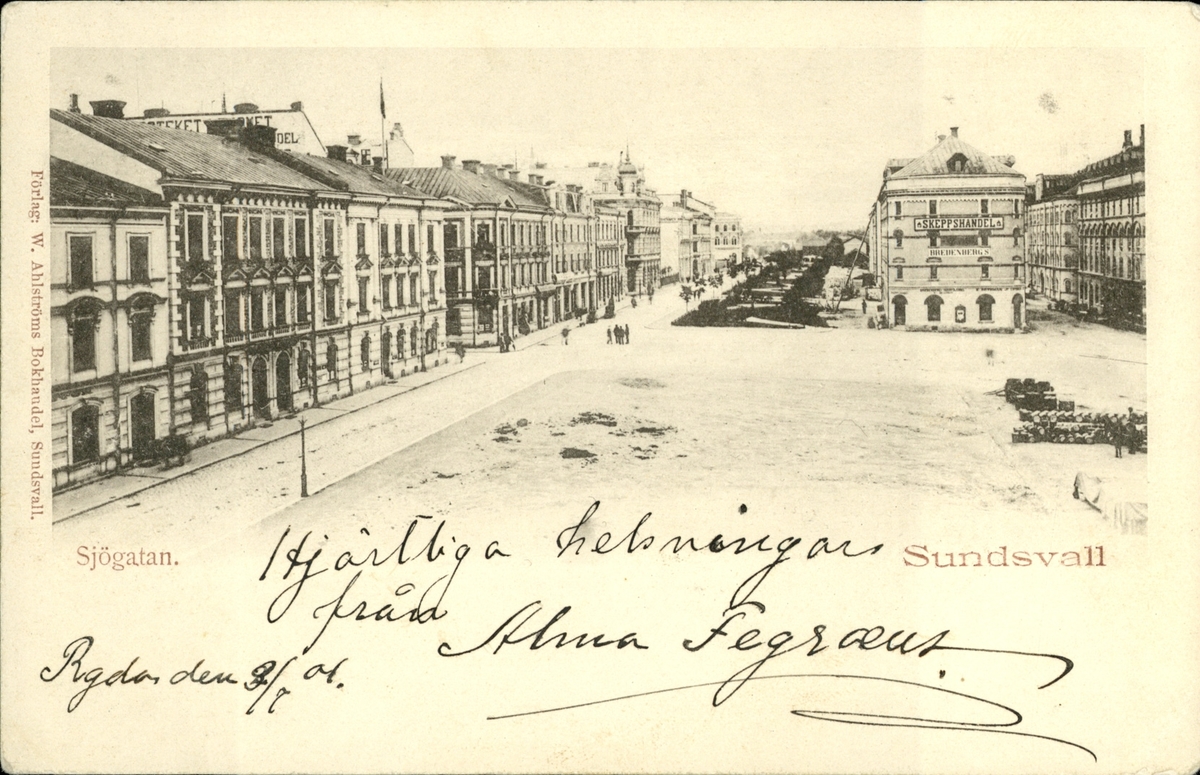 OTEKET
SKEPPSHANDEL
BREDENBERG'S
Förlag: W. Ahlströms Bokhandel, Sundsvall.
Sjögatan.
Sundsvall
Hjärtliga helsningar
från
Alma Fegræus
den 3/7 01.